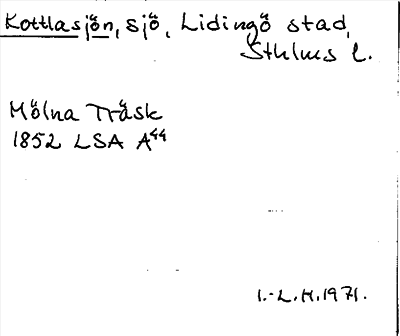 Kottlasjön, sjö, Lidingö stad,
Sthlms l.
Mölna Träsk
1852 LSA A44
I.-L.H.1971.